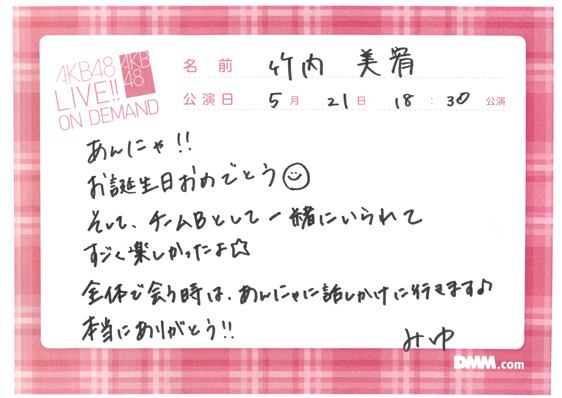 AKB48
LIVE!!
ON DEMAND
AKB
48
名前 竹内 美宥
公演日 5月 21日 18:30 公演
あんにゃ!!
お誕生日おめでとう☺
そして、チームBとして一緒にいられて
すごく楽しかったよ☆
全体で会う時は、あんにゃに話しかけに行きます♪
本当にありがとう!!
みゆ
DMM.com